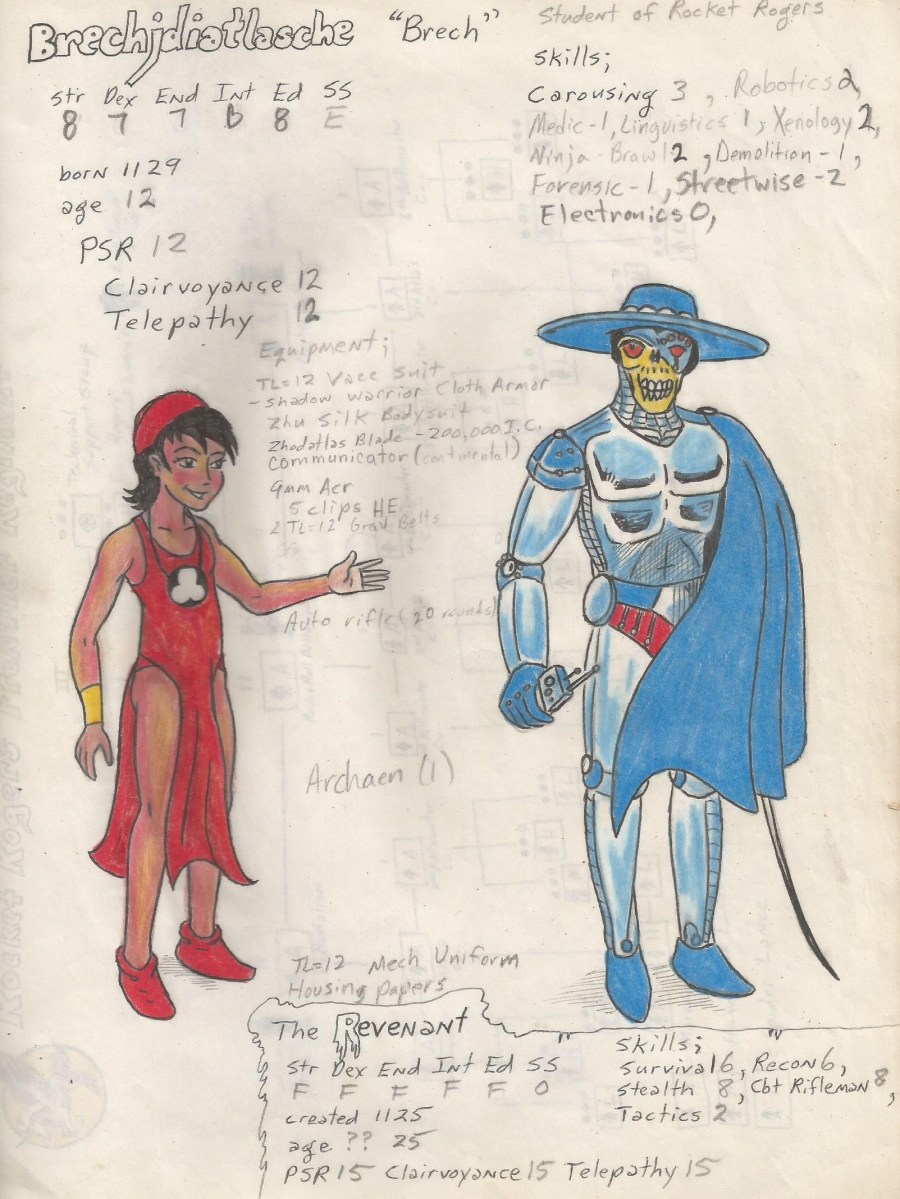 Brechjdiatlasche "Brech"
Student of Rocket Rogers
Str Dex End Int Ed SS
8 7 7 b 8 E
born 1129
age 12
PSR 12
Clairvoyance 12
Telepathy 12
Skills;
Carousing 3, Robotics 2,
Medic-1, Linguistics 1, Xenology 2,
Ninja-Brawl 2, Demolition-1,
Forensic-1, Streetwise-2
Electronics 0,
Equipment;
TL=12 Vacc Suit
-Shadow Warrior Cloth Armor
Zhu Silk Bodysuit
Zhodatlas Blade -200,000 I.C.
Communicator (continental)
9mm Acr
5 clips HE
2 TL=12 Grav Belts
Auto rifle (20 rounds)
Archaen (1)
TL=12 Mech Uniform
Housing papers
The Revenant
Str Dex End Int Ed SS
F F F F F 0
created 1125
age ?? 25
PSR 15 Clairvoyance 15 Telepathy 15
Skills;
Survival 6, Recon 6,
Stealth 8, Cbt Rifleman 8,
Tactics 2